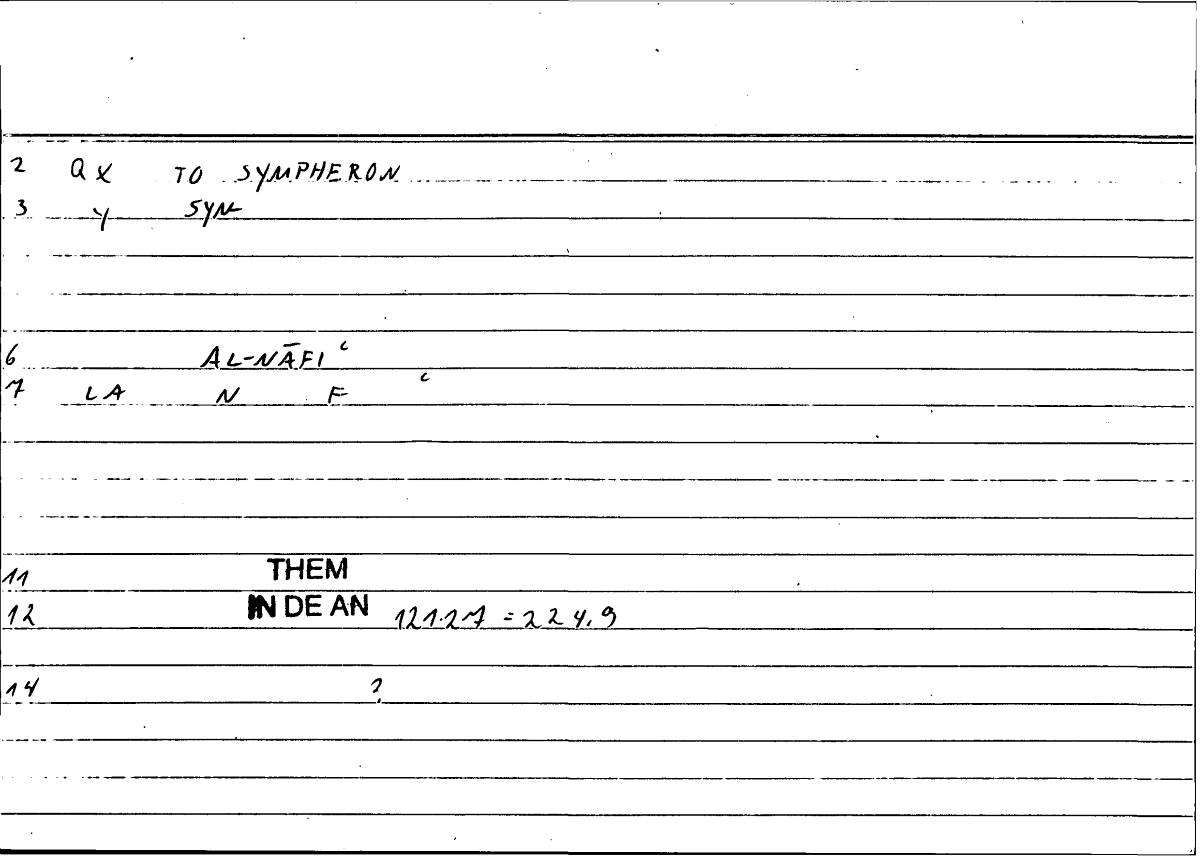 2 QX TO SYMPHERON
3 Y SYN
6 AL-NĀFIʿ
7 LA N F ʿ
11 THEM
12 IN DE AN 121.27 = 224.9
14 ?